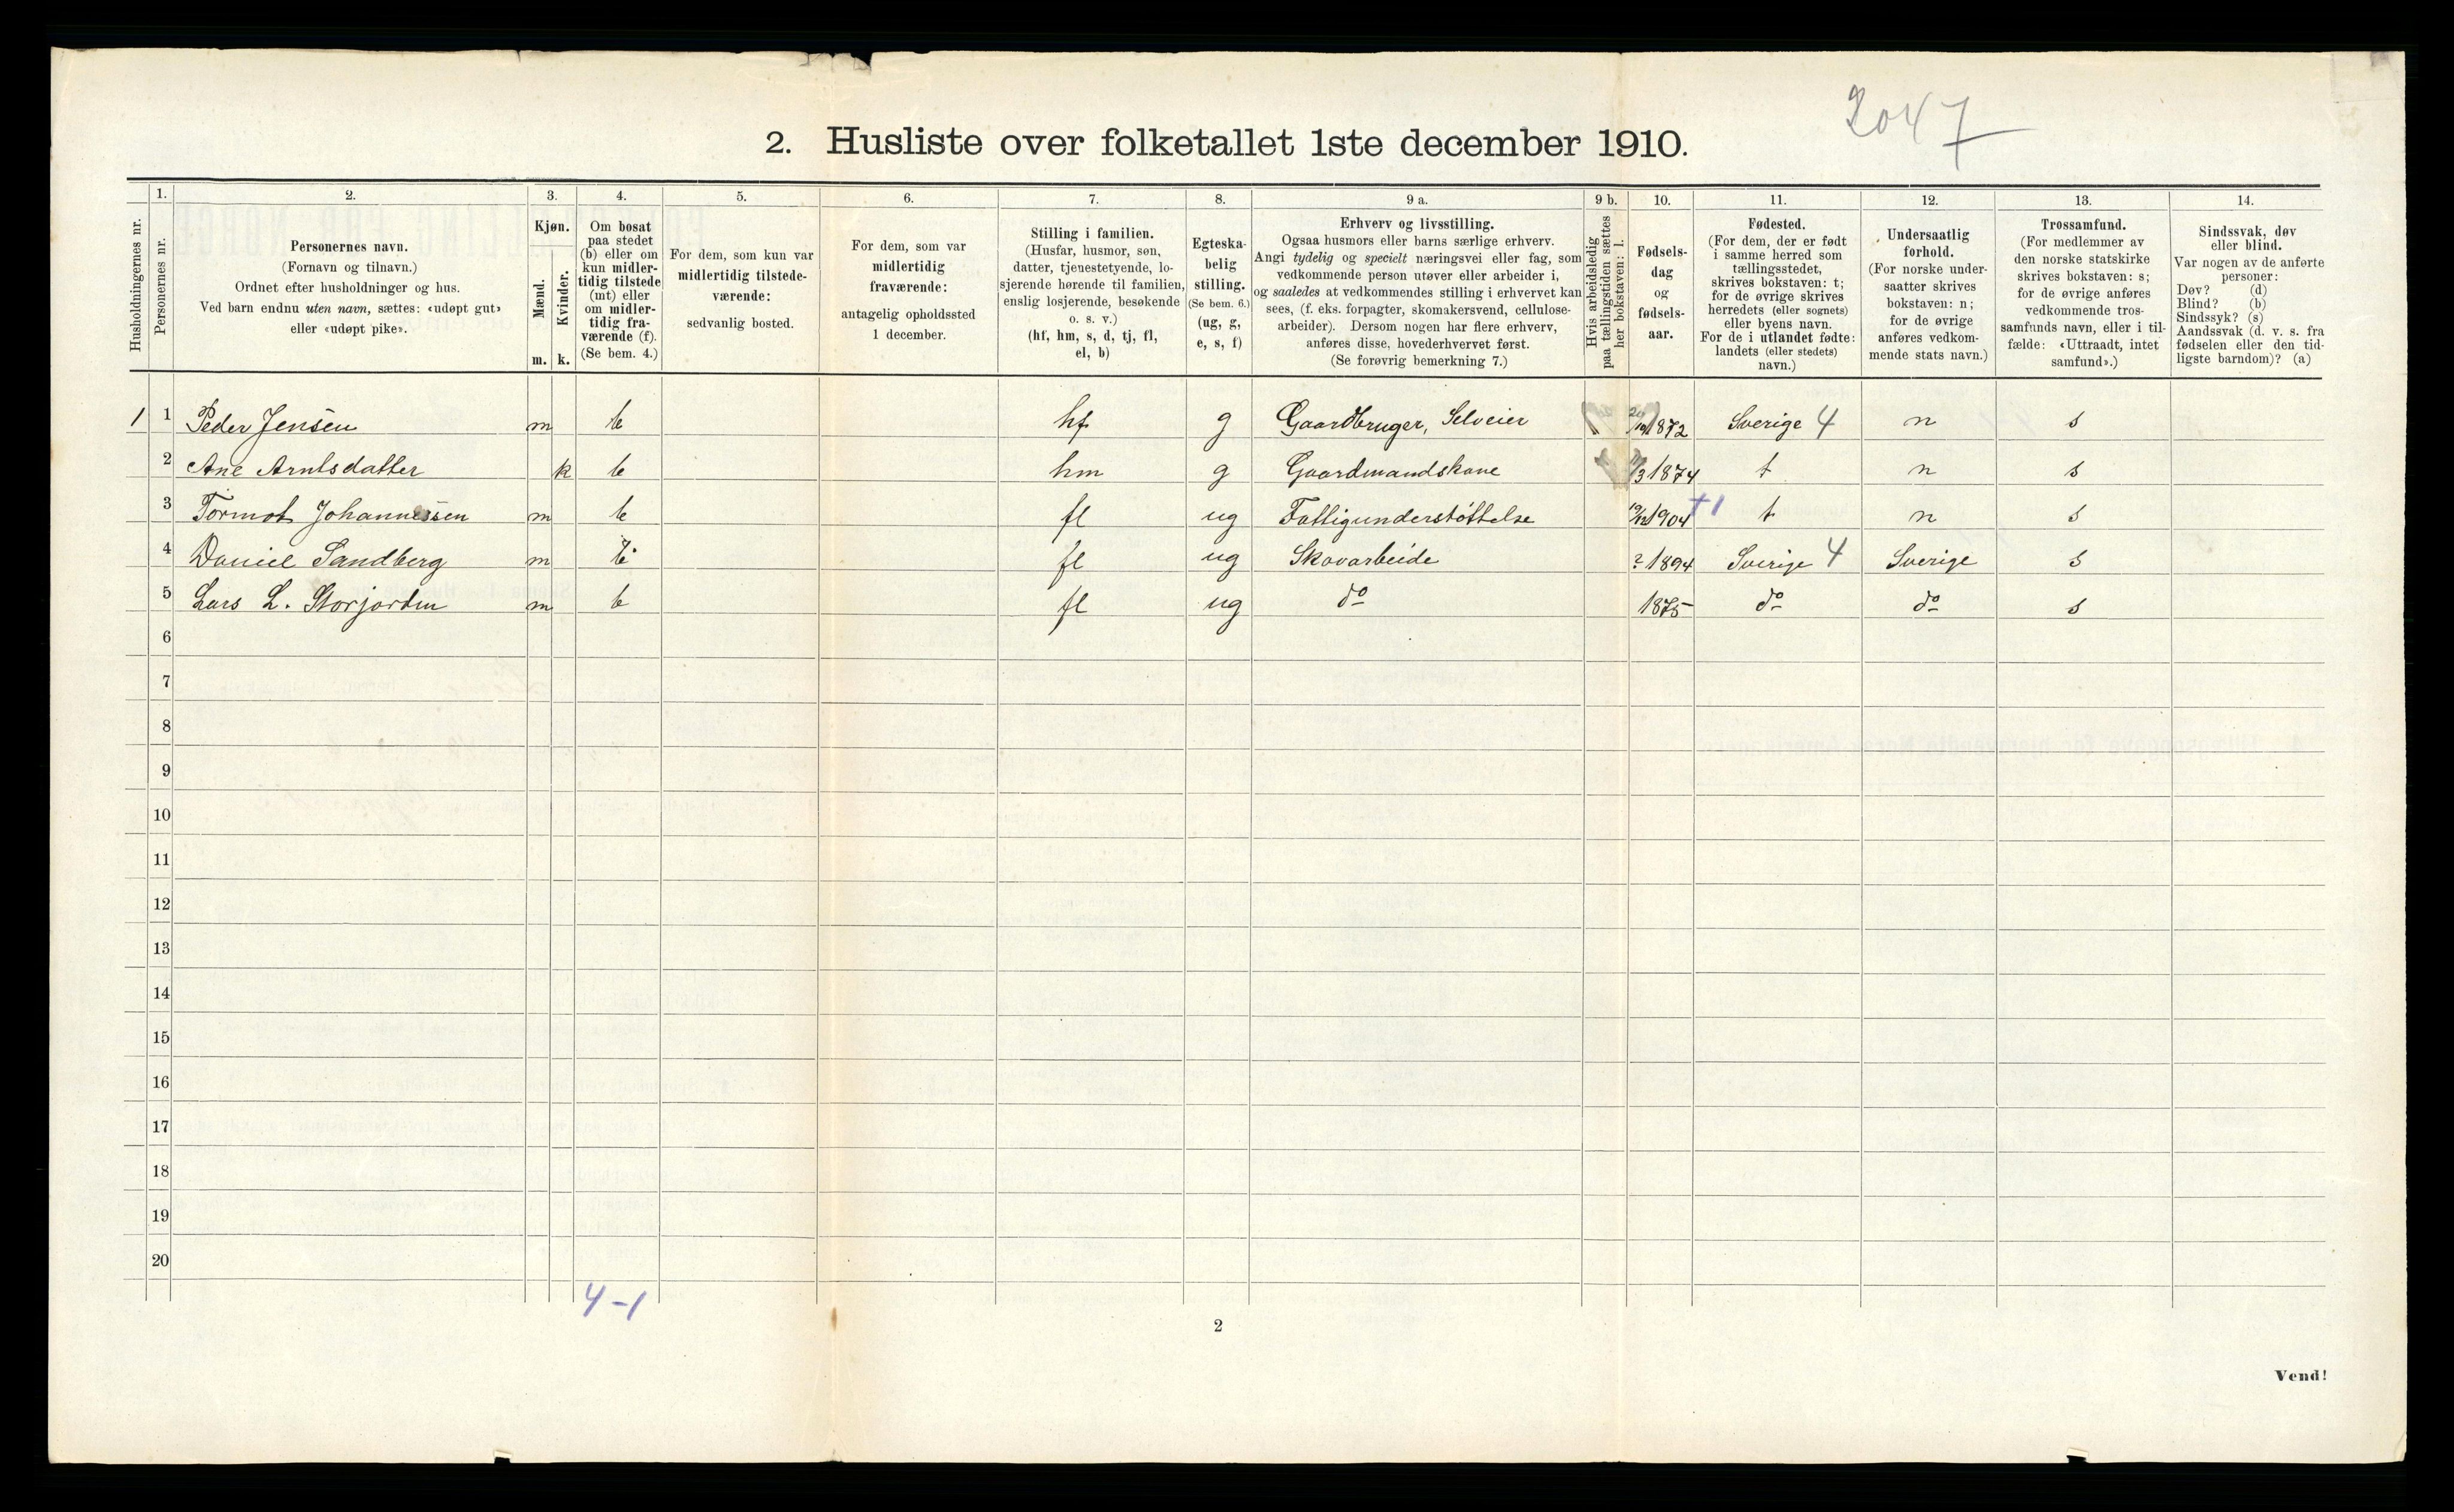 2047
2. Husliste over folketallet 1ste december 1910.
Husholdningernes nr.
1.
Personernes nr.
2.
Personernes navn.
(Fornavn og tilnavn.)
Ordnet efter husholdninger og hus.
Ved barn endnu uten navn, sættes: «udøpt gut»
eller «udøpt pike».
3.
Kjøn.
Mænd.
Kvinder.
m. k.
4.
Om bosat
paa stedet
(b) eller om
kun midler-
tidig tilstede
(mt) eller
om midler-
tidig fra-
værende (f).
(Se bem. 4.)
5.
For dem, som kun var
midlertidig tilstede-
værende:
sedvanlig bosted.
6.
For dem, som var
midlertidig
fraværende:
antagelig opholdssted
1 december.
7.
Stilling i familien.
(Husfar, husmor, søn,
datter, tjenestetyende, lo-
sjerende hørende til familien,
enslig losjerende, besøkende
o. s. v.)
(hf, hm, s, d, tj, fl,
el, b)
8.
Egteska-
belig
stilling.
(Se bem. 6.)
(ug, g,
e, s, f)
9 a.
Erhverv og livsstilling.
Ogsaa husmors eller barns særlige erhverv.
Angi tydelig og specielt næringsvei eller fag, som
vedkommende person utøver eller arbeider i,
og saaledes at vedkommendes stilling i erhvervet kan
sees, (f. eks. forpagter, skomakersvend, cellulose-
arbeider). Dersom nogen har flere erhverv,
anføres disse, hovederhvervet først.
(Se forøvrig bemerkning 7.)
9 b.
Hvis arbeidsledig
paa tællingstiden sættes
her bokstaven: l.
10.
Fødsels-
dag
og
fødsels-
aar.
11.
Fødested.
(For dem, der er født
i samme herred som
tællingsstedet,
skrives bokstaven: t;
for de øvrige skrives
herredets (eller sognets)
eller byens navn.
For de i utlandet fødte:
landets (eller stedets)
navn.)
12.
Undersaatlig
forhold.
(For norske under-
saatter skrives
bokstaven: n;
for de øvrige
anføres vedkom-
mende stats navn.)
13.
Trossamfund.
(For medlemmer av
den norske statskirke
skrives bokstaven: s;
for de øvrige anføres
vedkommende tros-
samfunds navn, eller i til-
fælde: «Uttraadt, intet
samfund».)
14.
Sindssvak, døv
eller blind.
Var nogen av de anførte
personer:
Døv? (d)
Blind? (b)
Sindssyk? (s)
Aandssvak (d. v. s. fra
fødselen eller den tid-
ligste barndom)? (a)
1 1 Peder Jensen m b hf g Gaardbruger, Selveier 1872 Sverige 4 n s
2 Ane Arntsdatter k b hm g Gaardmandskone 1874 t n s
3 Tormot Johannessen m b fl ug Fattigunderstøttelse 1904 +1 t n s
4 Daniel Sandberg m b fl ug Skovarbeide ? 1894 Sverige 4 Sverige s
5 Lars L. Storjorden m b fl ug do 1875 do do s
6
7
8
9
10
11
12
13
14
15
16
17
18
19
20
4-1
2
Vend!